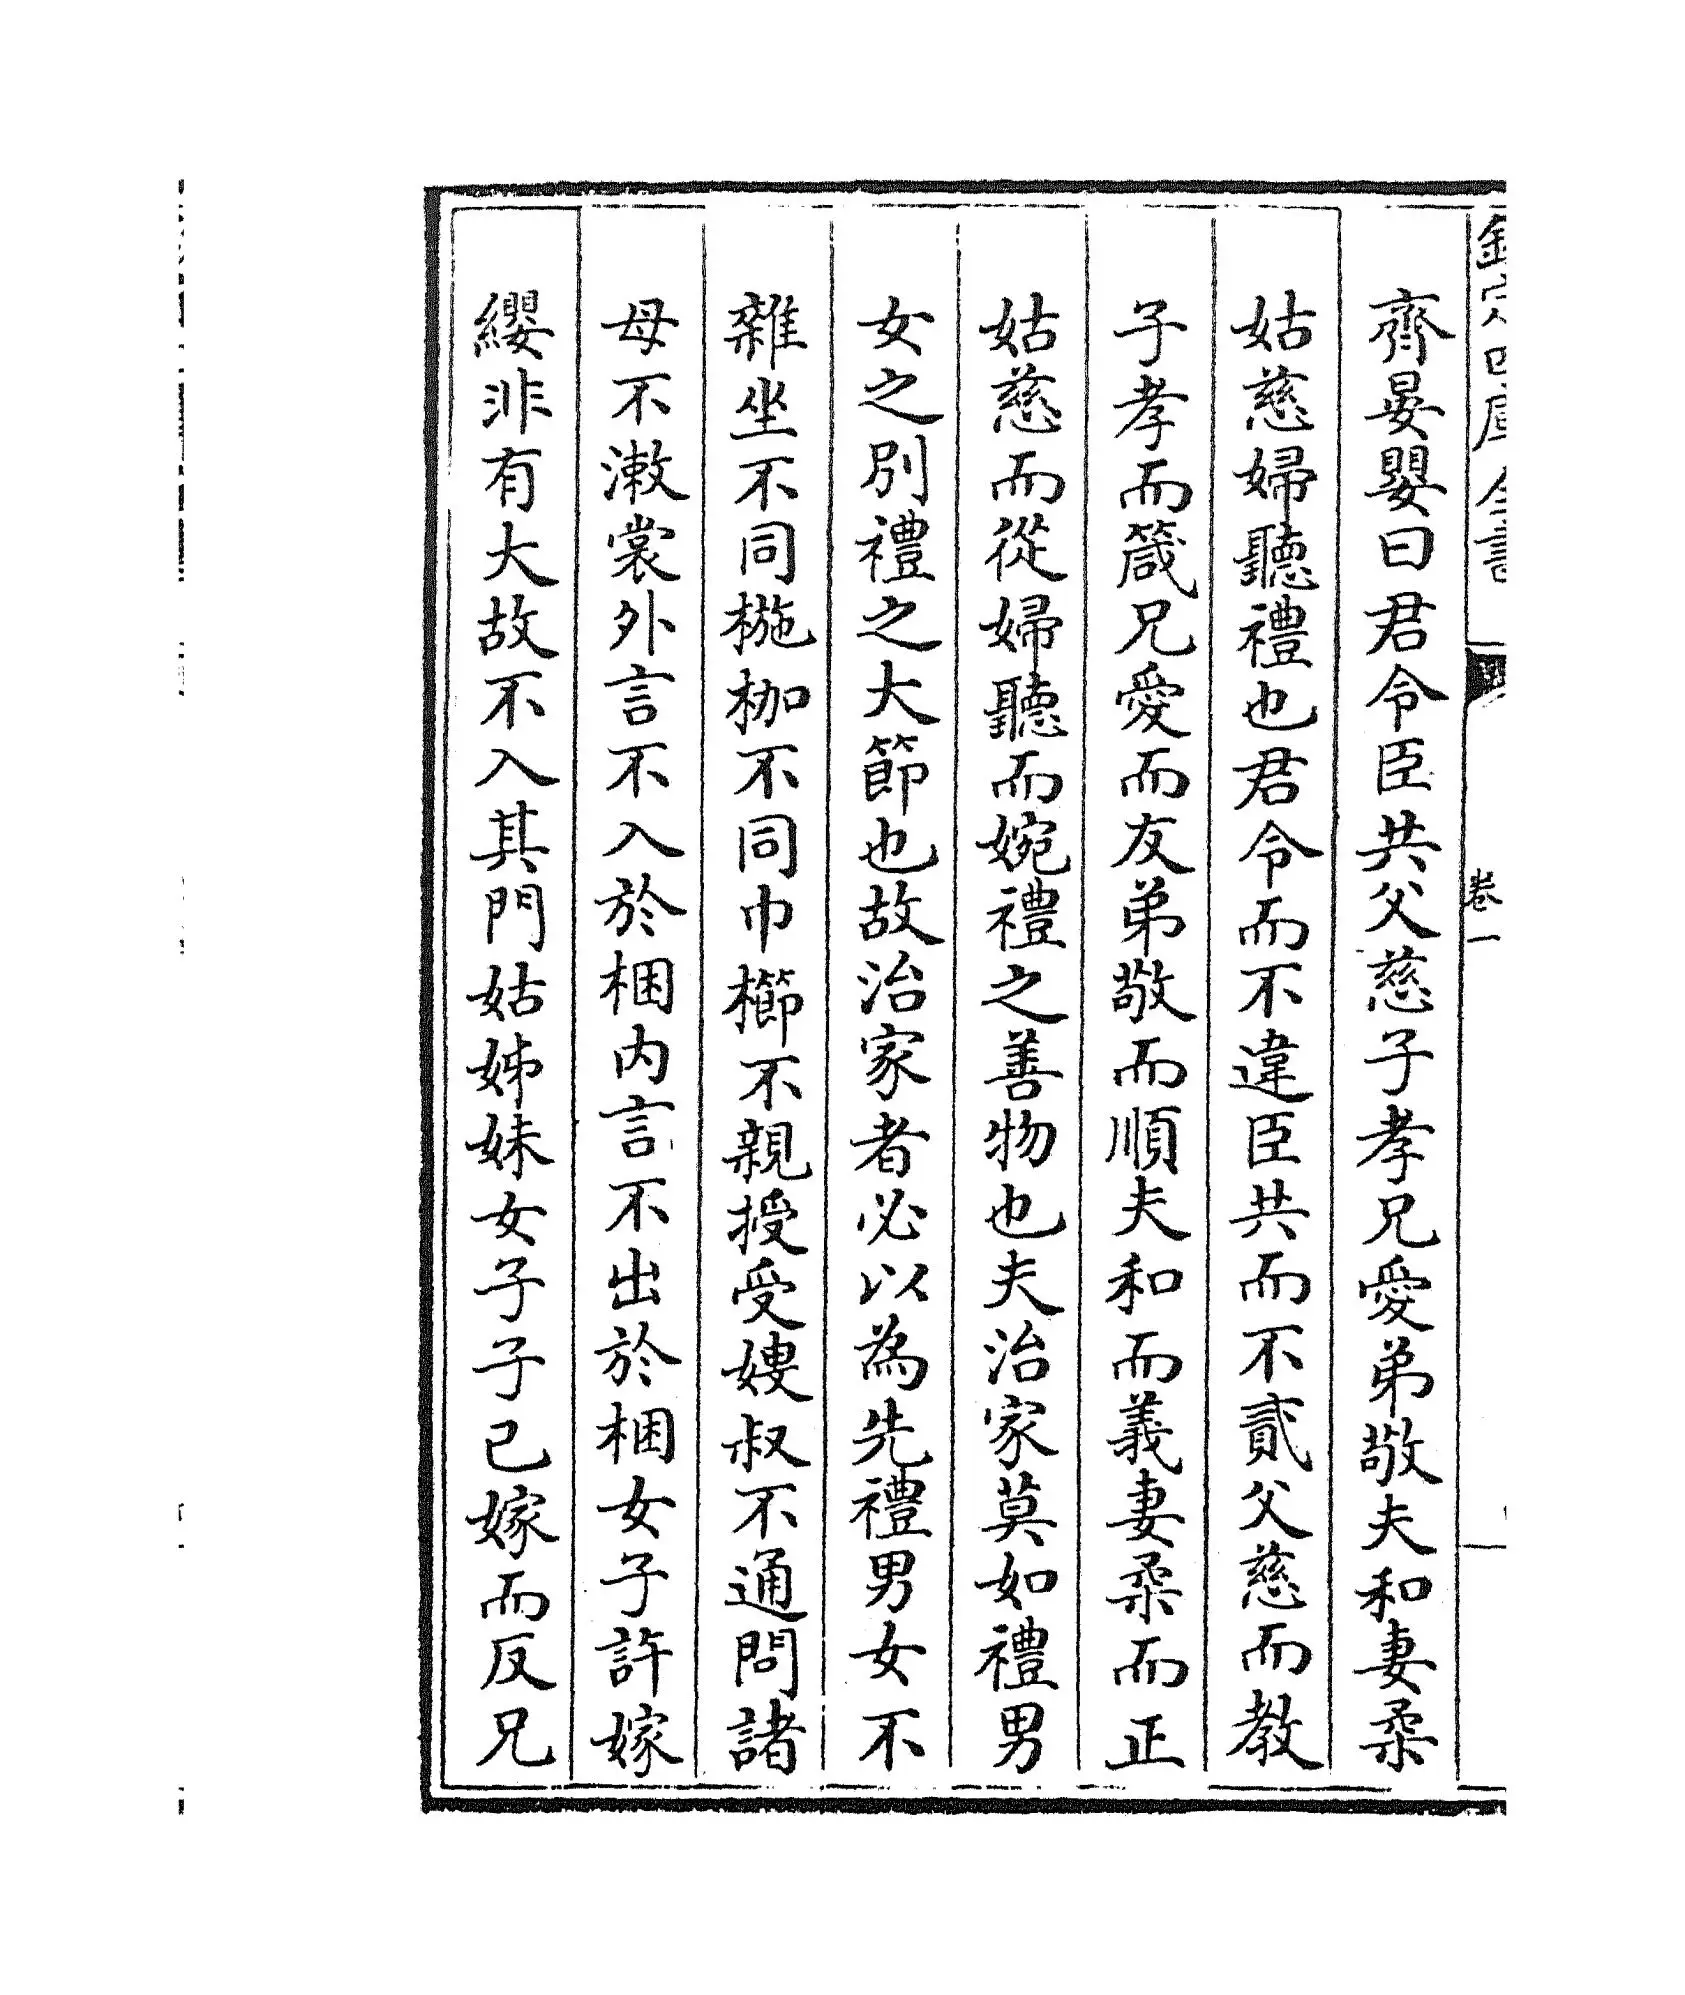 欽定四庫全書
卷一
齊晏嬰曰君令臣共父慈子孝兄愛弟敬夫和妻柔
姑慈婦聽禮也君令而不違臣共而不貳父慈而教
子孝而箴兄愛而友弟敬而順夫和而義妻柔而正
姑慈而從婦聽而婉禮之善物也夫治家莫如禮男
女之別禮之大節也故治家者必以為先禮男女不
雜坐不同椸枷不同巾櫛不親授受嫂叔不通問諸
母不漱裳外言不入於梱内言不出於梱女子許嫁
纓非有大故不入其門姑姊妹女子子已嫁而反兄